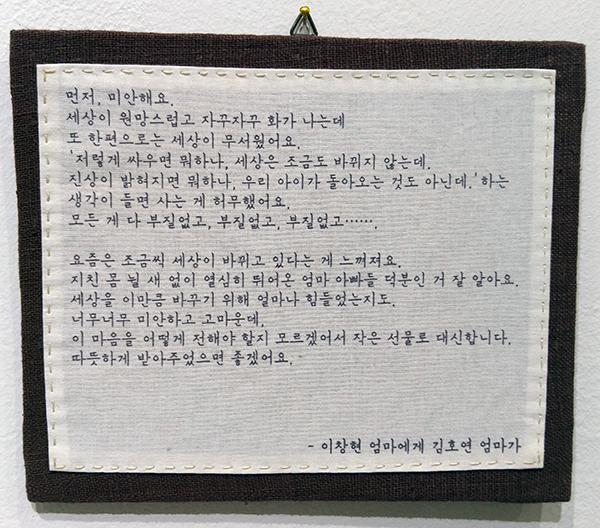 먼저, 미안해요.
세상이 원망스럽고 자꾸자꾸 화가 나는데
또 한편으로는 세상이 무서웠어요.
'저렇게 싸우면 뭐하나, 세상은 조금도 바뀌지 않는데.
진상이 밝혀지면 뭐하나, 우리 아이가 돌아오는 것도 아닌데.'하는
생각이 들면 사는 게 허무했어요.
모든 게 다 부질없고, 부질없고, 부질없고…….
요즘은 조금씩 세상이 바뀌고 있다는 게 느껴져요.
지친 몸 뉠 새 없이 열심히 뛰어온 엄마 아빠들 덕분인 거 잘 알아요.
세상을 이만큼 바꾸기 위해 얼마나 힘들었는지도.
너무너무 미안하고 고마운데,
이 마음을 어떻게 전해야 할지 모르겠어서 작은 선물로 대신합니다.
따뜻하게 받아주었으면 좋겠어요.
- 이창현 엄마에게 김호연 엄마가